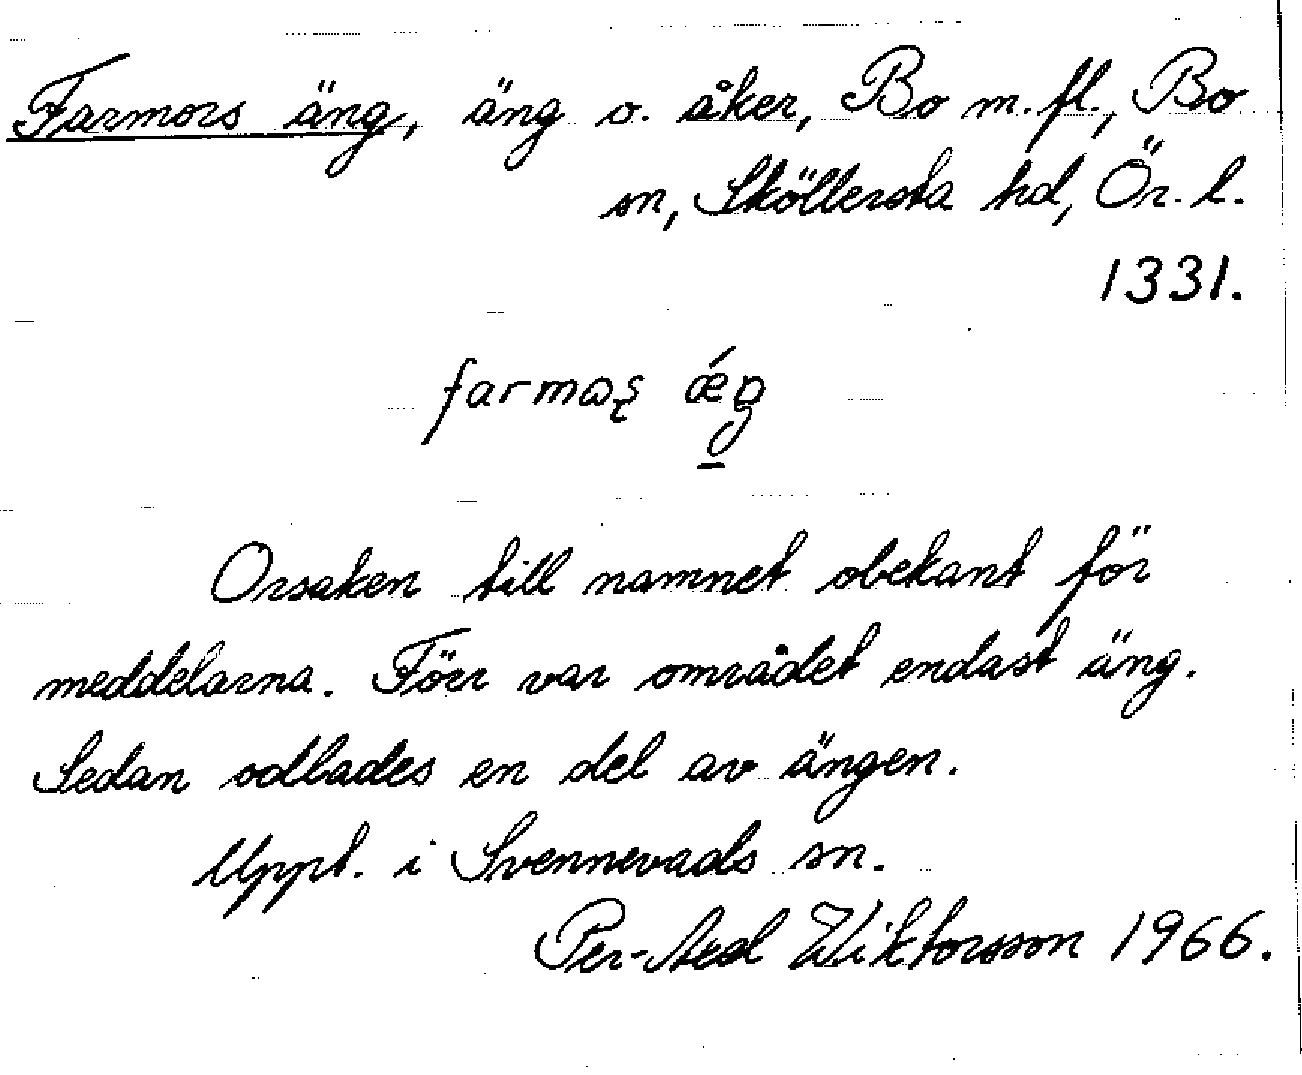 Farmors äng, äng o. åker, Bo m. fl., Bo
sn, Sköllersta hd, Ör. l.
1331.
Orsaken till namnet obekant för
meddelarna. Förr var området endast äng.
Sedan odlades en del av ängen.
Uppt. i Svennevads sn.
Per-Axel Wiktorsson 1966.